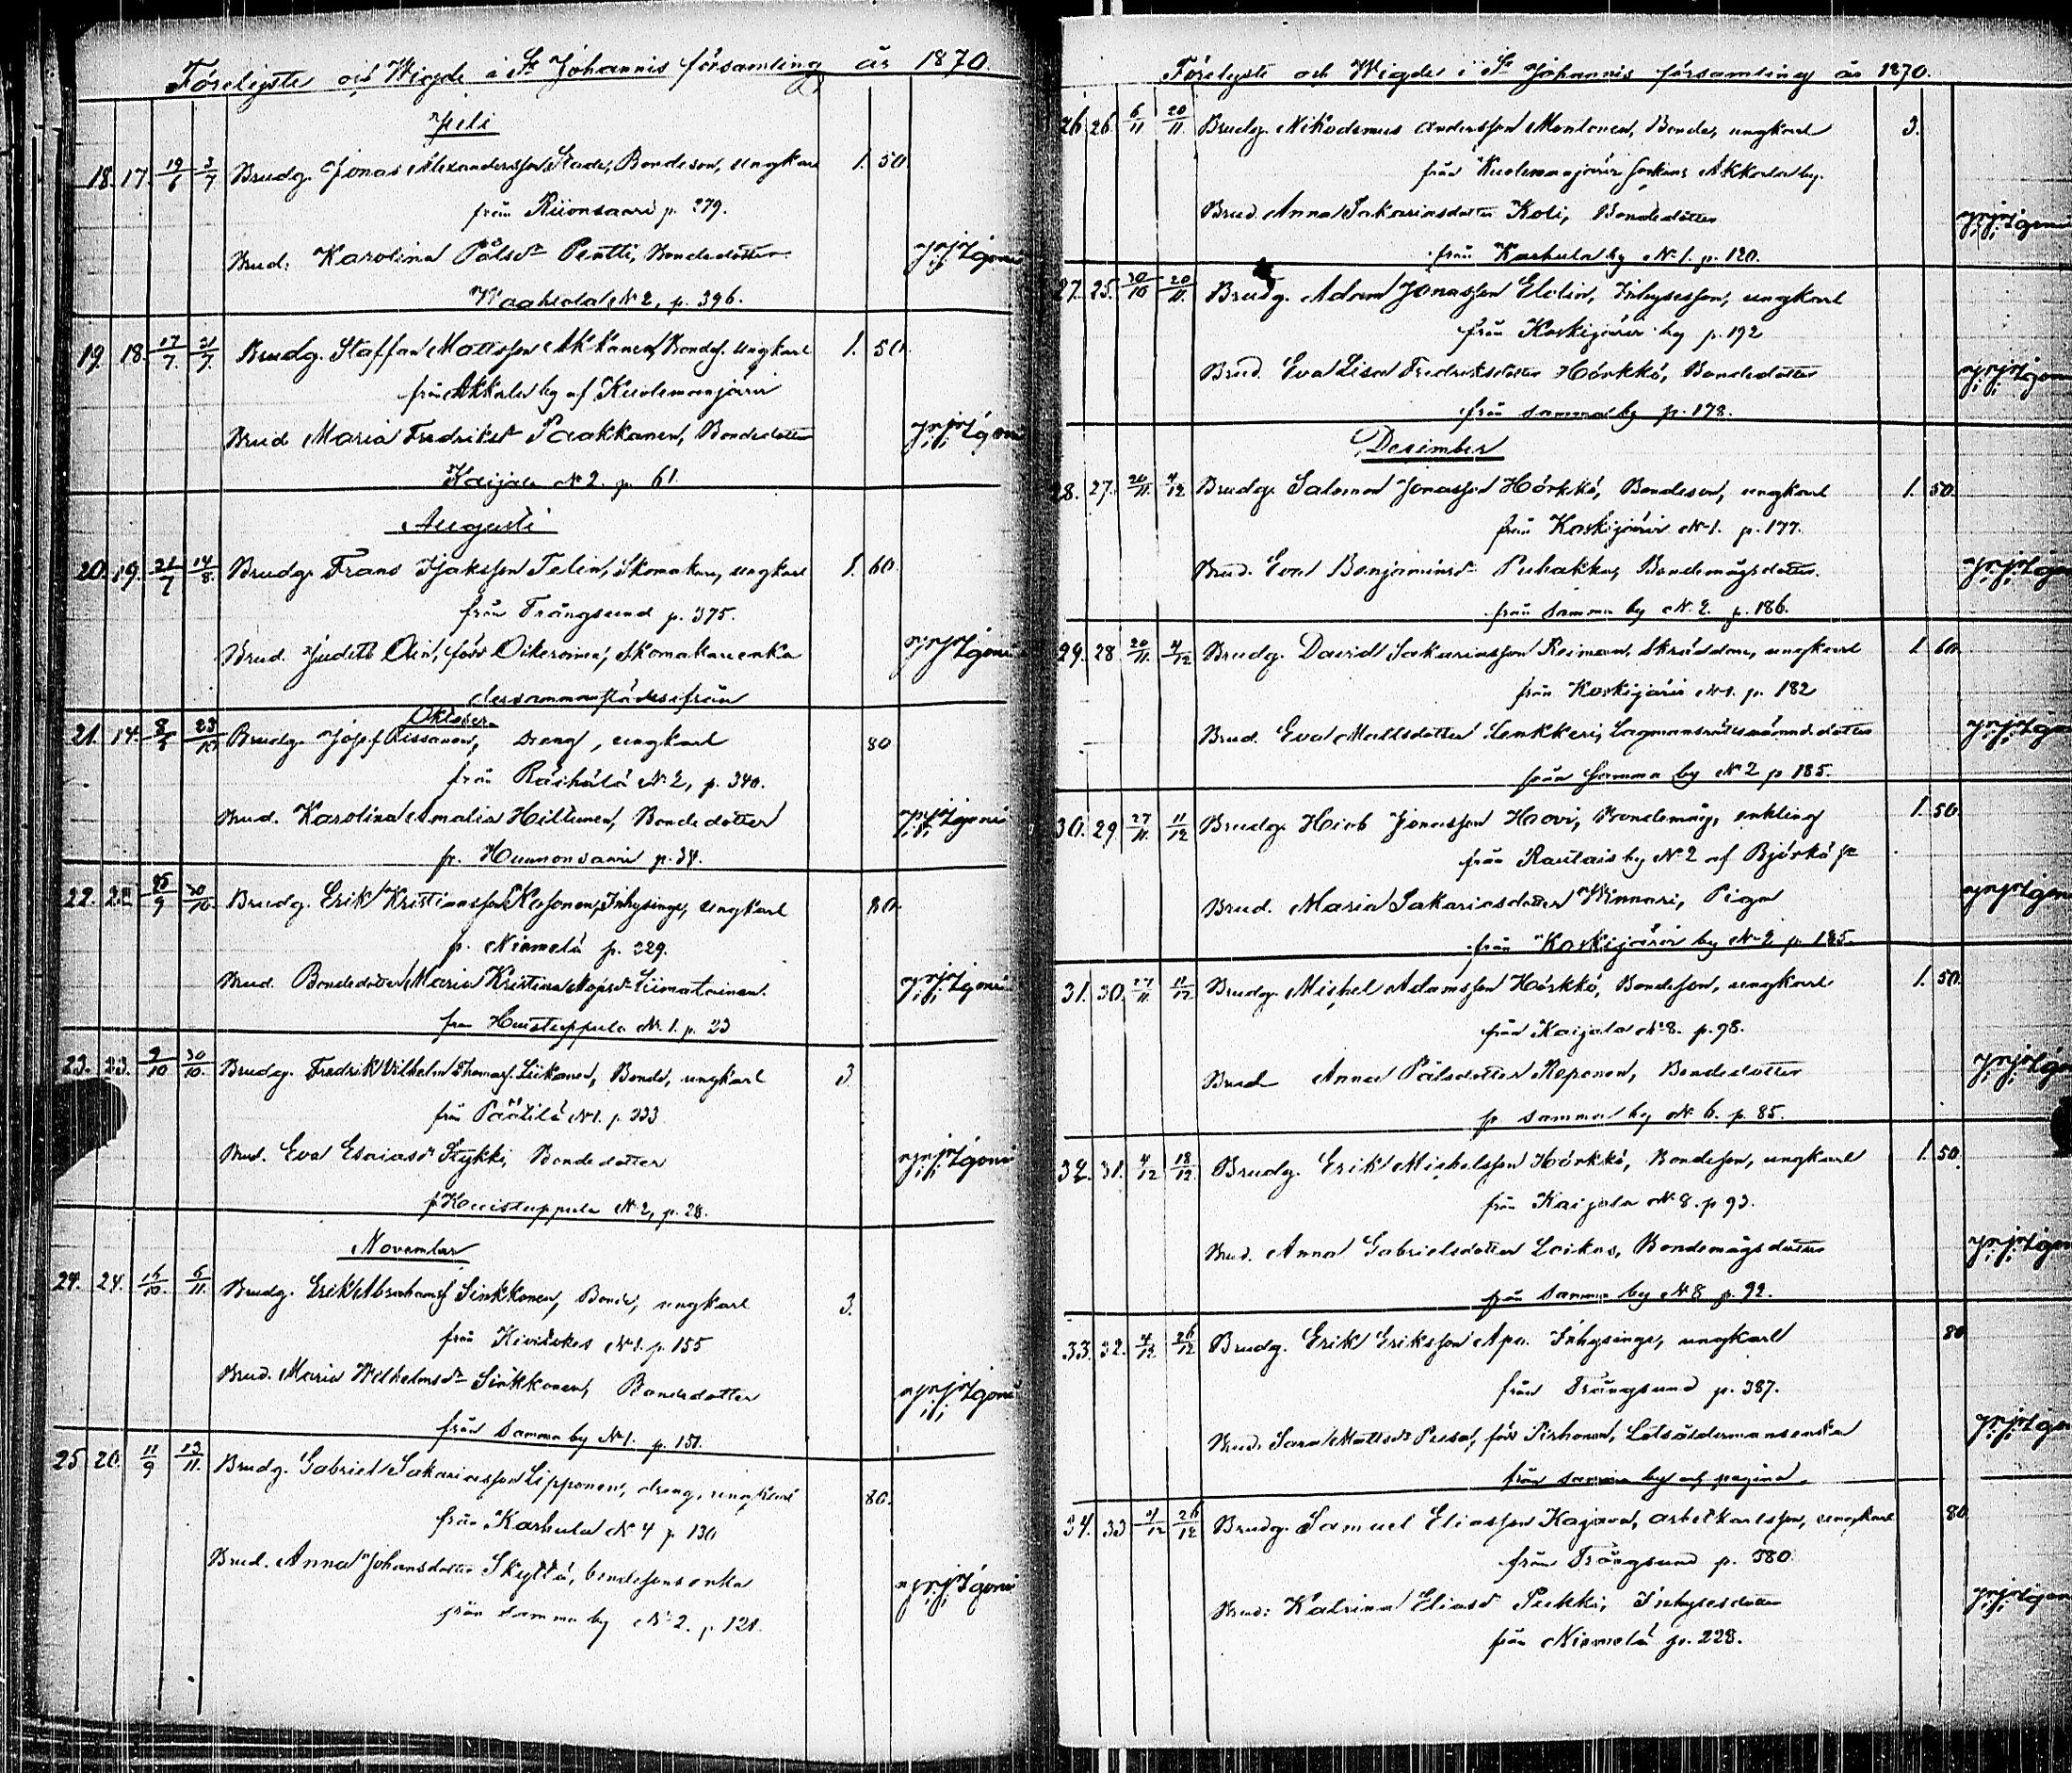 Förelyste och Wigde i St Johannis församling år 1870.
Juli
18. 17. 19/6 3/7 Brudg. Jonas Alexandersson Stade, Bondeson, ungkarl 1. 50.
från Riionsaari p. 279.
Brud: Karolina Påls dr Pentti, Bondedotter
Waahtola N 2, p. 396.
19. 18. 17/7 31/7 Brudg. Staffan Mattsson Akkanen, Bondes. ungkarl 1. 50.
från Akkala by af Kuolemanjärvi
Brud Maria Fredriksd Paakkanen, Bondedotter
Kaijala N 2. p. 61.
Augusti
20. 19. 14/8 Brudg. Frans Isaksson Telin, Skomakare, ungkarl 1. 60.
från Trångsund p. 375.
Brud. Judith född Oikeroinen, Skomakareenka
dersammastädes ifrån
Oktober.
21. 14. 23/10 Brudg. Josef Rissanen, dreng, ungkarl 80
från Räihälä N 2, p. 340.
Brud. Karolina Amalia Hiltunen, Bondedotter
fr. Huunonsaari p. 34.
22. 22 25/9 30/10. Brudg. Erik Kristiansson Kosonen, Inhysinge, ungkarl 80.
fr. Niemelä p. 229.
Brud. Bondedotter Maria Kristina Liimatainen.
från Huistuppula N. 1. p. 23
23. 23. 9/10 30/10. Brudg. Fredrik Vilhelm Thomass. Liikanen, Bonde, ungkarl 3.
från Päätilä N 1. p. 333
Brud. Eva Esaiasd Stykki, Bondedotter
fr Huistuppula N 2, p. 28.
November
24. 24. 16/10. 6/11. Brudg. Erik Abrahamss Sinkkonen, Bonde, ungkarl 3.
från Kiviskoes N 1. p. 155
Brud. Maria Wilhelmsdr Sinkkonen, Bondedotter
från samma by N 1. p. 151.
25 20. 11/9 13/11. Brudg. Gabriel Sakariasson Lipponen, dreng, ungkarl 80.
från Karhula N 4 p 130
Brud. Anna Johansdotter Skyttä, bondesons enka
från samma by N 2. p. 121.
Förelyste och Wigde i St Johannis församling år 1870.
26. 26. 6/11 20/11. Brudg. Nikodemus Andersson Montonen, Bonde, ungkarl 3.
från Kuolemanjärvi sockns Akkala by.
Brud. Anna Sakariasdotter Koli, Bondedotter
från Karhula by N 1. p. 120.
27. 25. 30/10 20/11. Brudg. Adam Jonasson Elolin, Inhysesson, ungkarl
från Koskijärvi by p. 192
Brud. Eva Lisa Fredriksdotter Hörkkö, Bondedotter
från samma by p. 178.
Desember
28. 27. 20/11. 4/12 Brudg. Salomon Jonasson Hörkkö, Bondeson, ungkarl 1. 50.
från Koskijärvi N 1. p. 177.
Brud. Eva Benjaminsd Puhakka, Bondemågsdotter.
från samma by N. 2. p. 186.
29. 28 20/11. 4/12 Brudg. David Sakariasson Reiman, Skräddare, ungkarl 1. 60.
från Koskijärvi N 1. p. 182
Brud. Eva Mattsdotter Lenkkeri, Lagmansrättsnämndsdotter
från samma by N 2 p 185.
30. 29. 27/11. 11/12 Brudg. Hiob Jonasson Hovi, Bondemåg, enkling 1. 50.
från Rautais by N 2 af Björkö sn
Brud. Maria Sakariasdotter Winnari, Piga
från Koskijärvi by N 2 p. 185.
31. 30. 27/11. 11/12 Brudg. Michel Adamsson Hörkkö, Bondeson, ungkarl 1. 50.
från Kaijala N 8. p. 98.
Brud Anna Pålsdotter Reponen, Bondedotter
fr samma by N 6. p. 85.
32. 31. 4/12 18/12. Brudg. Erik Michelsson Hörkkö, Bondeson, ungkarl 1. 50.
från Kaijala N 8. p 93.
Brud. Anna Gabrielsdotter Loikas, Bondemågsdotter
från samma by N 8 p. 92.
33. 32. 4/12 26/12 Brudg. Erik Eriksson Apu. Inhysinge, ungkarl 80.
från Trångsund p. 387.
Brud. Sara Mattsdr Pusa, född Pirhonen, Lotsåldermansenka
från samma by och pagina.
34. 33 4/12 26/12 Brudg. Samuel Eliasson Kajava, arbetkarlsson, ungkarl 80.
från Trångsund p. 380.
Brud: Katrina Eliasd Pukki, Inhysesdotter
från Niemelä p. 228.